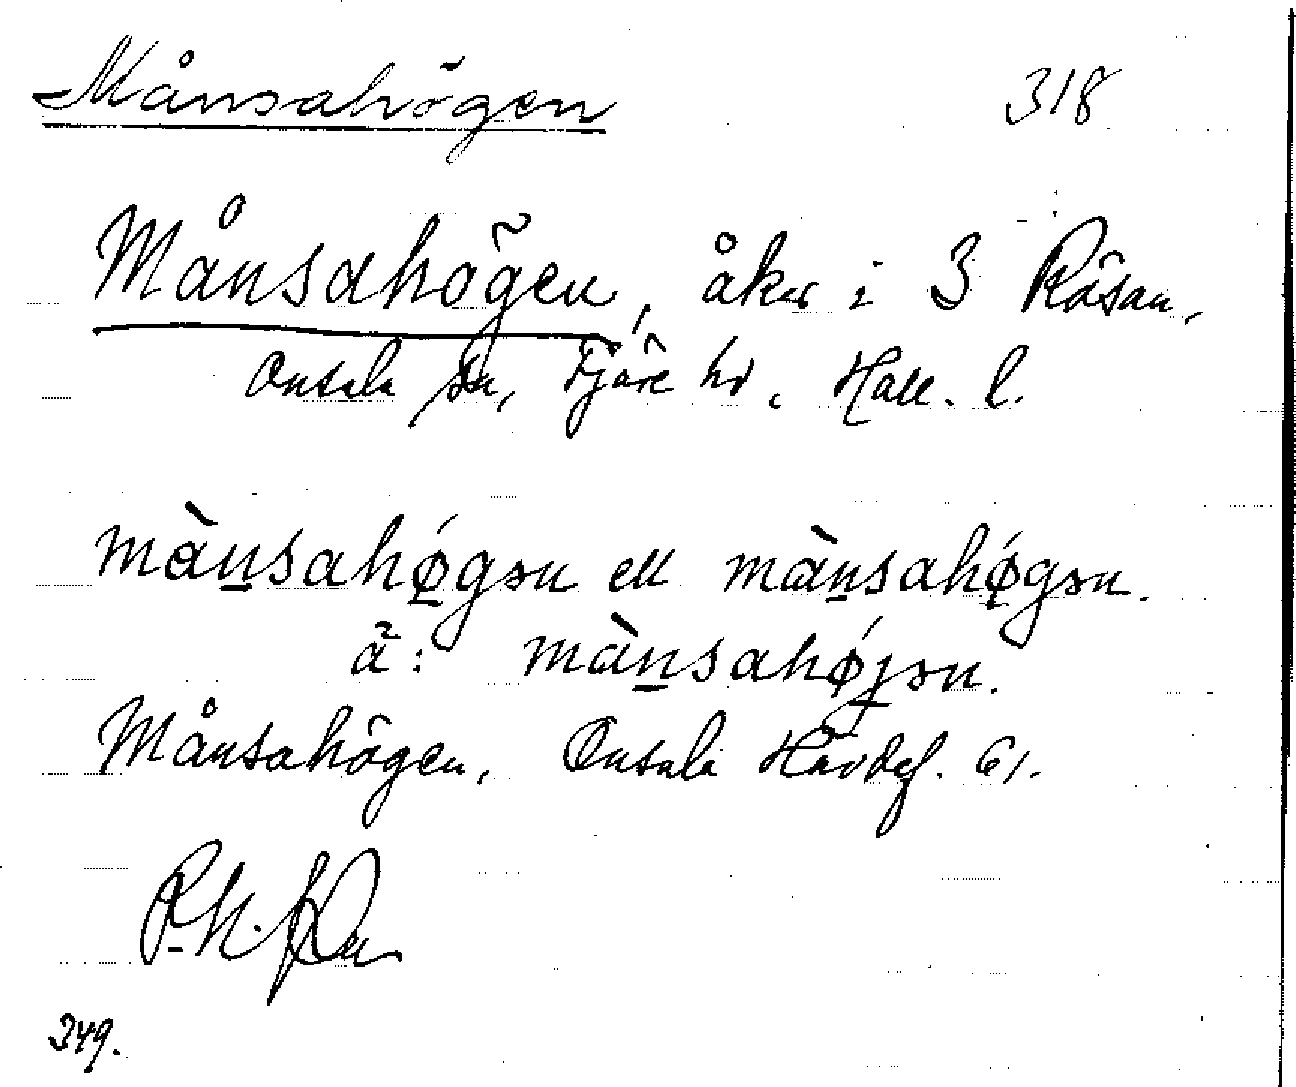 Månsahögen 318
Månsahögen, åker i 3 Rösan,
Onsala sn, Fjäre hd, Hall. l.
mànsahǿgən ell mànsahǿgən.
ä: mànsahǿjən.
Månsahögen, Onsala Hävdef. 61.
349.